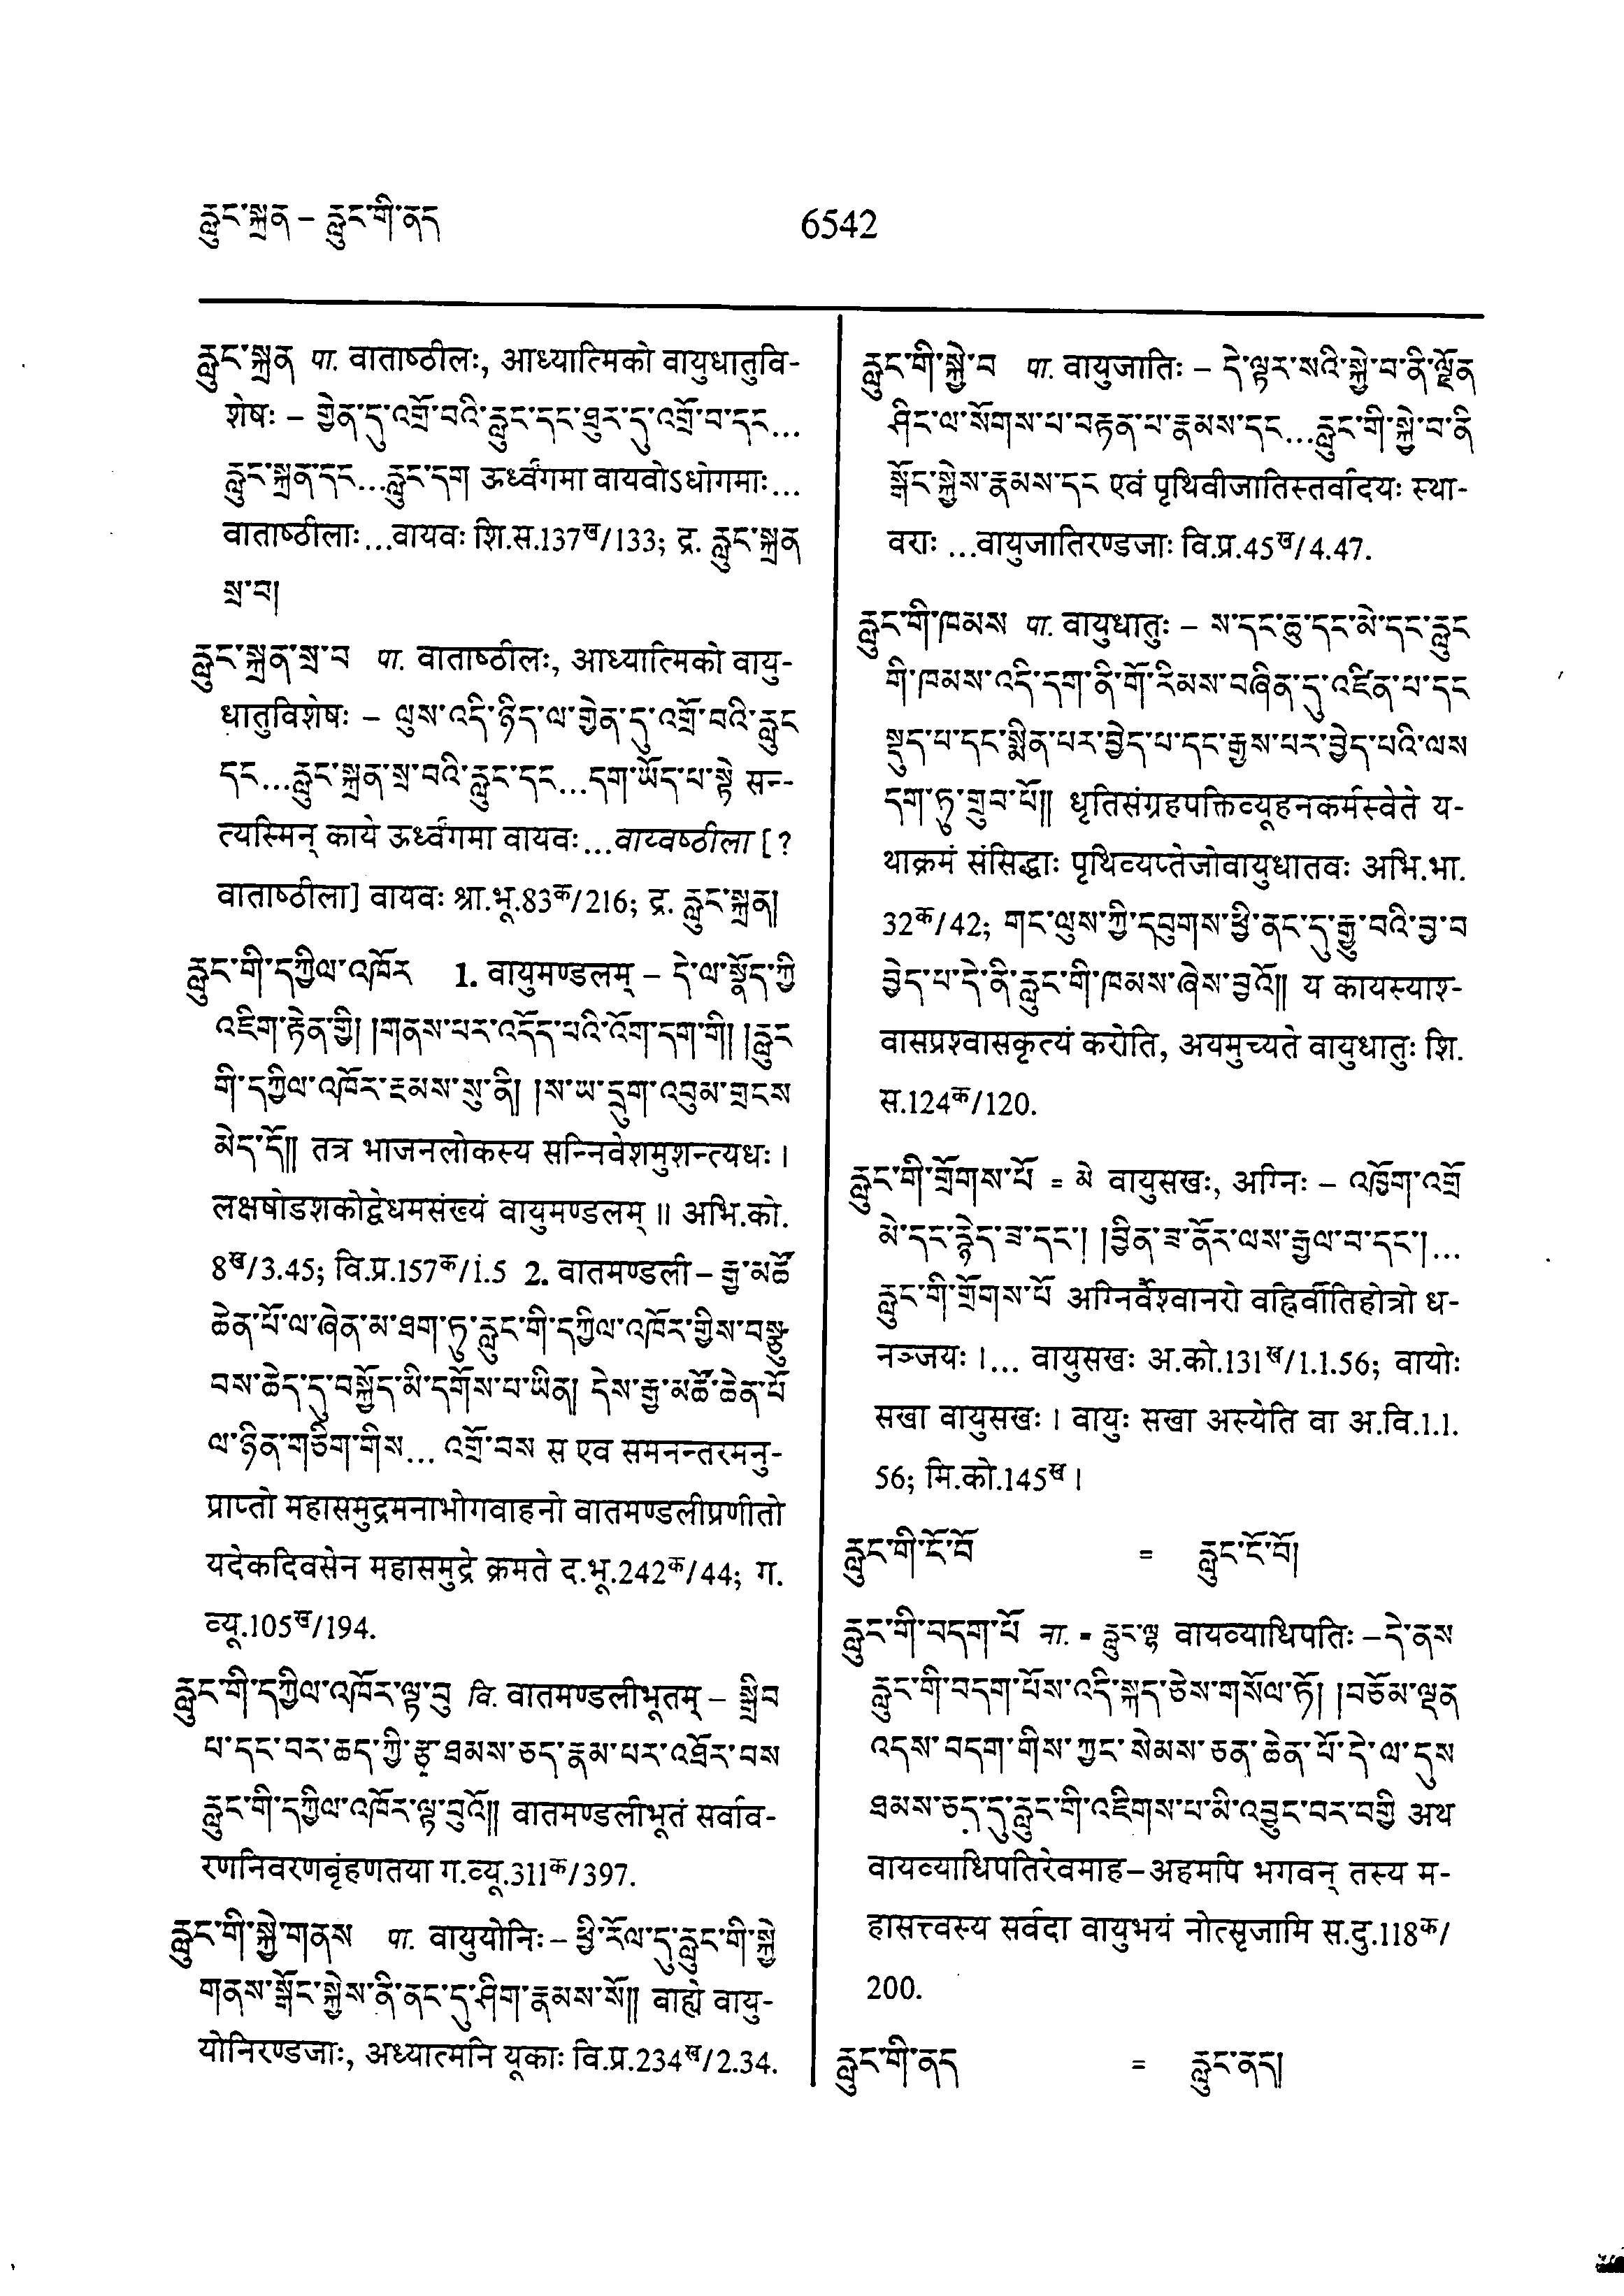 རླུང་སྐྲན – རླུང་གི་ནད
6542
རླུང་སྐྲན पा. वाताष्ठीलः, आध्यात्मिको वायुधातुवि-
शेषः – གྱེན་དུ་འགྲོ་བའི་རླུང་དང་ཐུར་དུ་འགྲོ་བ་དང...
རླུང་སྐྲན་དང...རླུང་དག ऊर्ध्वंगमा वायवोऽधोगमाः...
वाताष्ठीलाः...वायवः शि.स.137ख/133; द्र. རླུང་སྐྲན
སྲ་བ།
རླུང་སྐྲན་སྲ་བ पा. वाताष्ठीलः, आध्यात्मिको वायु-
धातुविशेषः – ལུས་འདི་ཉིད་ལ་གྱེན་དུ་འགྲོ་བའི་རླུང
དང...རླུང་སྐྲན་སྲ་བའི་རླུང་དང...དག་ཡོད་པ་སྟེ सन्-
त्यस्मिन् काये ऊर्ध्वंगमा वायवः...वाय्वष्ठीला [?
वाताष्ठीला] वायवः श्रा.भू.83क/216; द्र. རླུང་སྐྲན།
རླུང་གི་དཀྱིལ་འཁོར 1. वायुमण्डलम् – དེ་ལ་སྣོད་ཀྱི
འཇིག་རྟེན་གྱི། །གནས་པར་འདོད་པའི་འོག་དག་གི། །རླུང
གི་དཀྱིལ་འཁོར་རྔམས་སུ་ནི། །ས་ཡ་དྲུག་འབུམ་གྲངས
མེད་དོ།། तत्र भाजनलोकस्य सन्निवेशमुशन्त्यधः ।
लक्षषोडशकोद्वेधमसंख्यं वायुमण्डलम् ॥ अभि.को.
8ख/3.45; वि.प्र.157क/1.5 2. वातमण्डली – རྒྱ་མཚོ
ཆེན་པོ་ལ་ཞེན་མ་ཐག་ཏུ་རླུང་གི་དཀྱིལ་འཁོར་གྱིས་བསྐྱ
བས་ཆེད་དུ་བསྐྱོད་མི་དགོས་པ་ཡིན། དེས་རྒྱ་མཚོ་ཆེན་པོ
ལ་ཉིན་གཅིག་གིས... འགྲོ་བས स एव समनन्तरमनु-
प्राप्तो महासमुद्रमनाभोगवाहनो वातमण्डलीप्रणीतो
यदेकदिवसेन महासमुद्रे क्रमते द.भू.242क/44; ग.
व्यू.105ख/194.
རླུང་གི་དཀྱིལ་འཁོར་ལྟ་བུ वि. वातमण्डलीभूतम् – སྒྲིབ
པ་དང་བར་ཆད་ཀྱི་རྩྭ་ཐམས་ཅད་རྣམ་པར་འཐོར་བས
རླུང་གི་དཀྱིལ་འཁོར་ལྟ་བུའོ།། वातमण्डलीभूतं सर्वाव-
रणनिवरणबृंहणतया ग.व्यू.311क/397.
རླུང་གི་སྐྱེ་གནས पा. वायुयोनिः – ཕྱི་རོལ་དུ་རླུང་གི་སྐྱེ
གནས་སྒོང་སྐྱེས་ནི་ནང་དུ་ཤིག་རྣམས་སོ།། बाह्ये वायु-
योनिरण्डजाः, अध्यात्मनि यूकाः वि.प्र.234ख/2.34.
རླུང་གི་སྐྱེ་བ पा. वायुजातिः – དེ་ལྟར་སའི་སྐྱེ་བ་ནི་ལྗོན
ཤིང་ལ་སོགས་པ་བརྟན་པ་རྣམས་དང...རླུང་གི་སྐྱེ་བ་ནི
སྒོང་སྐྱེས་རྣམས་དང एवं पृथिवीजातिस्तर्वादयः स्था-
वराः ...वायुजातिरण्डजाः वि.प्र.45ख/4.47.
རླུང་གི་ཁམས पा. वायुधातुः – ས་དང་ཆུ་དང་མེ་དང་རླུང
གི་ཁམས་འདི་དག་ནི་གོ་རིམས་བཞིན་དུ་འཛིན་པ་དང
སྡུད་པ་དང་སྨིན་པར་བྱེད་པ་དང་རྒྱས་པར་བྱེད་པའི་ལས
དག་ཏུ་གྲུབ་པོ།། धृतिसंग्रहपक्तिव्यूहनकर्मस्वेते य-
थाक्रमं संसिद्धाः पृथिव्यप्तेजोवायुधातवः अभि.भा.
32क/42; གང་ལུས་ཀྱི་དབུགས་ཕྱི་ནང་དུ་རྒྱུ་བའི་བྱ་བ
བྱེད་པ་དེ་ནི་རླུང་གི་ཁམས་ཞེས་བྱའོ།། य कायस्याश्-
वासप्रश्वासकृत्यं करोति, अयमुच्यते वायुधातुः शि.
स.124क/120.
རླུང་གི་གྲོགས་པོ = མེ वायुसखः, अग्निः – འཁྱོག་འགྲོ
མེ་དང་རྙེད་ཟ་དང་། །བྱིན་ཟ་ནོར་ལས་རྒྱལ་བ་དང་།...
རླུང་གི་གྲོགས་པོ अग्निर्वैश्वानरो वह्निर्वीतिहोत्रो ध-
नञ्जयः ।... वायुसखः अ.को.131ख/1.1.56; वायोः
सखा वायुसखः । वायुः सखा अस्येति वा अ.वि.1.1.
56; मि.को.145ख ।
རླུང་གི་ངོ་བོ = རླུང་ངོ་བོ།
རླུང་གི་བདག་པོ ना. = རླུང་ལྷ वायव्याधिपतिः – དེ་ནས
རླུང་གི་བདག་པོས་འདི་སྐད་ཅེས་གསོལ་ཏོ། །བཅོམ་ལྡན
འདས་བདག་གིས་ཀྱང་སེམས་ཅན་ཆེན་པོ་དེ་ལ་དུས
ཐམས་ཅད་དུ་རླུང་གི་འཇིགས་པ་མི་འབྱུང་བར་བགྱི अथ
वायव्याधिपतिरेवमाह–अहमपि भगवन् तस्य म-
हासत्त्वस्य सर्वदा वायुभयं नोत्सृजामि स.दु.118क/
200.
རླུང་གི་ནད = རླུང་ནད།